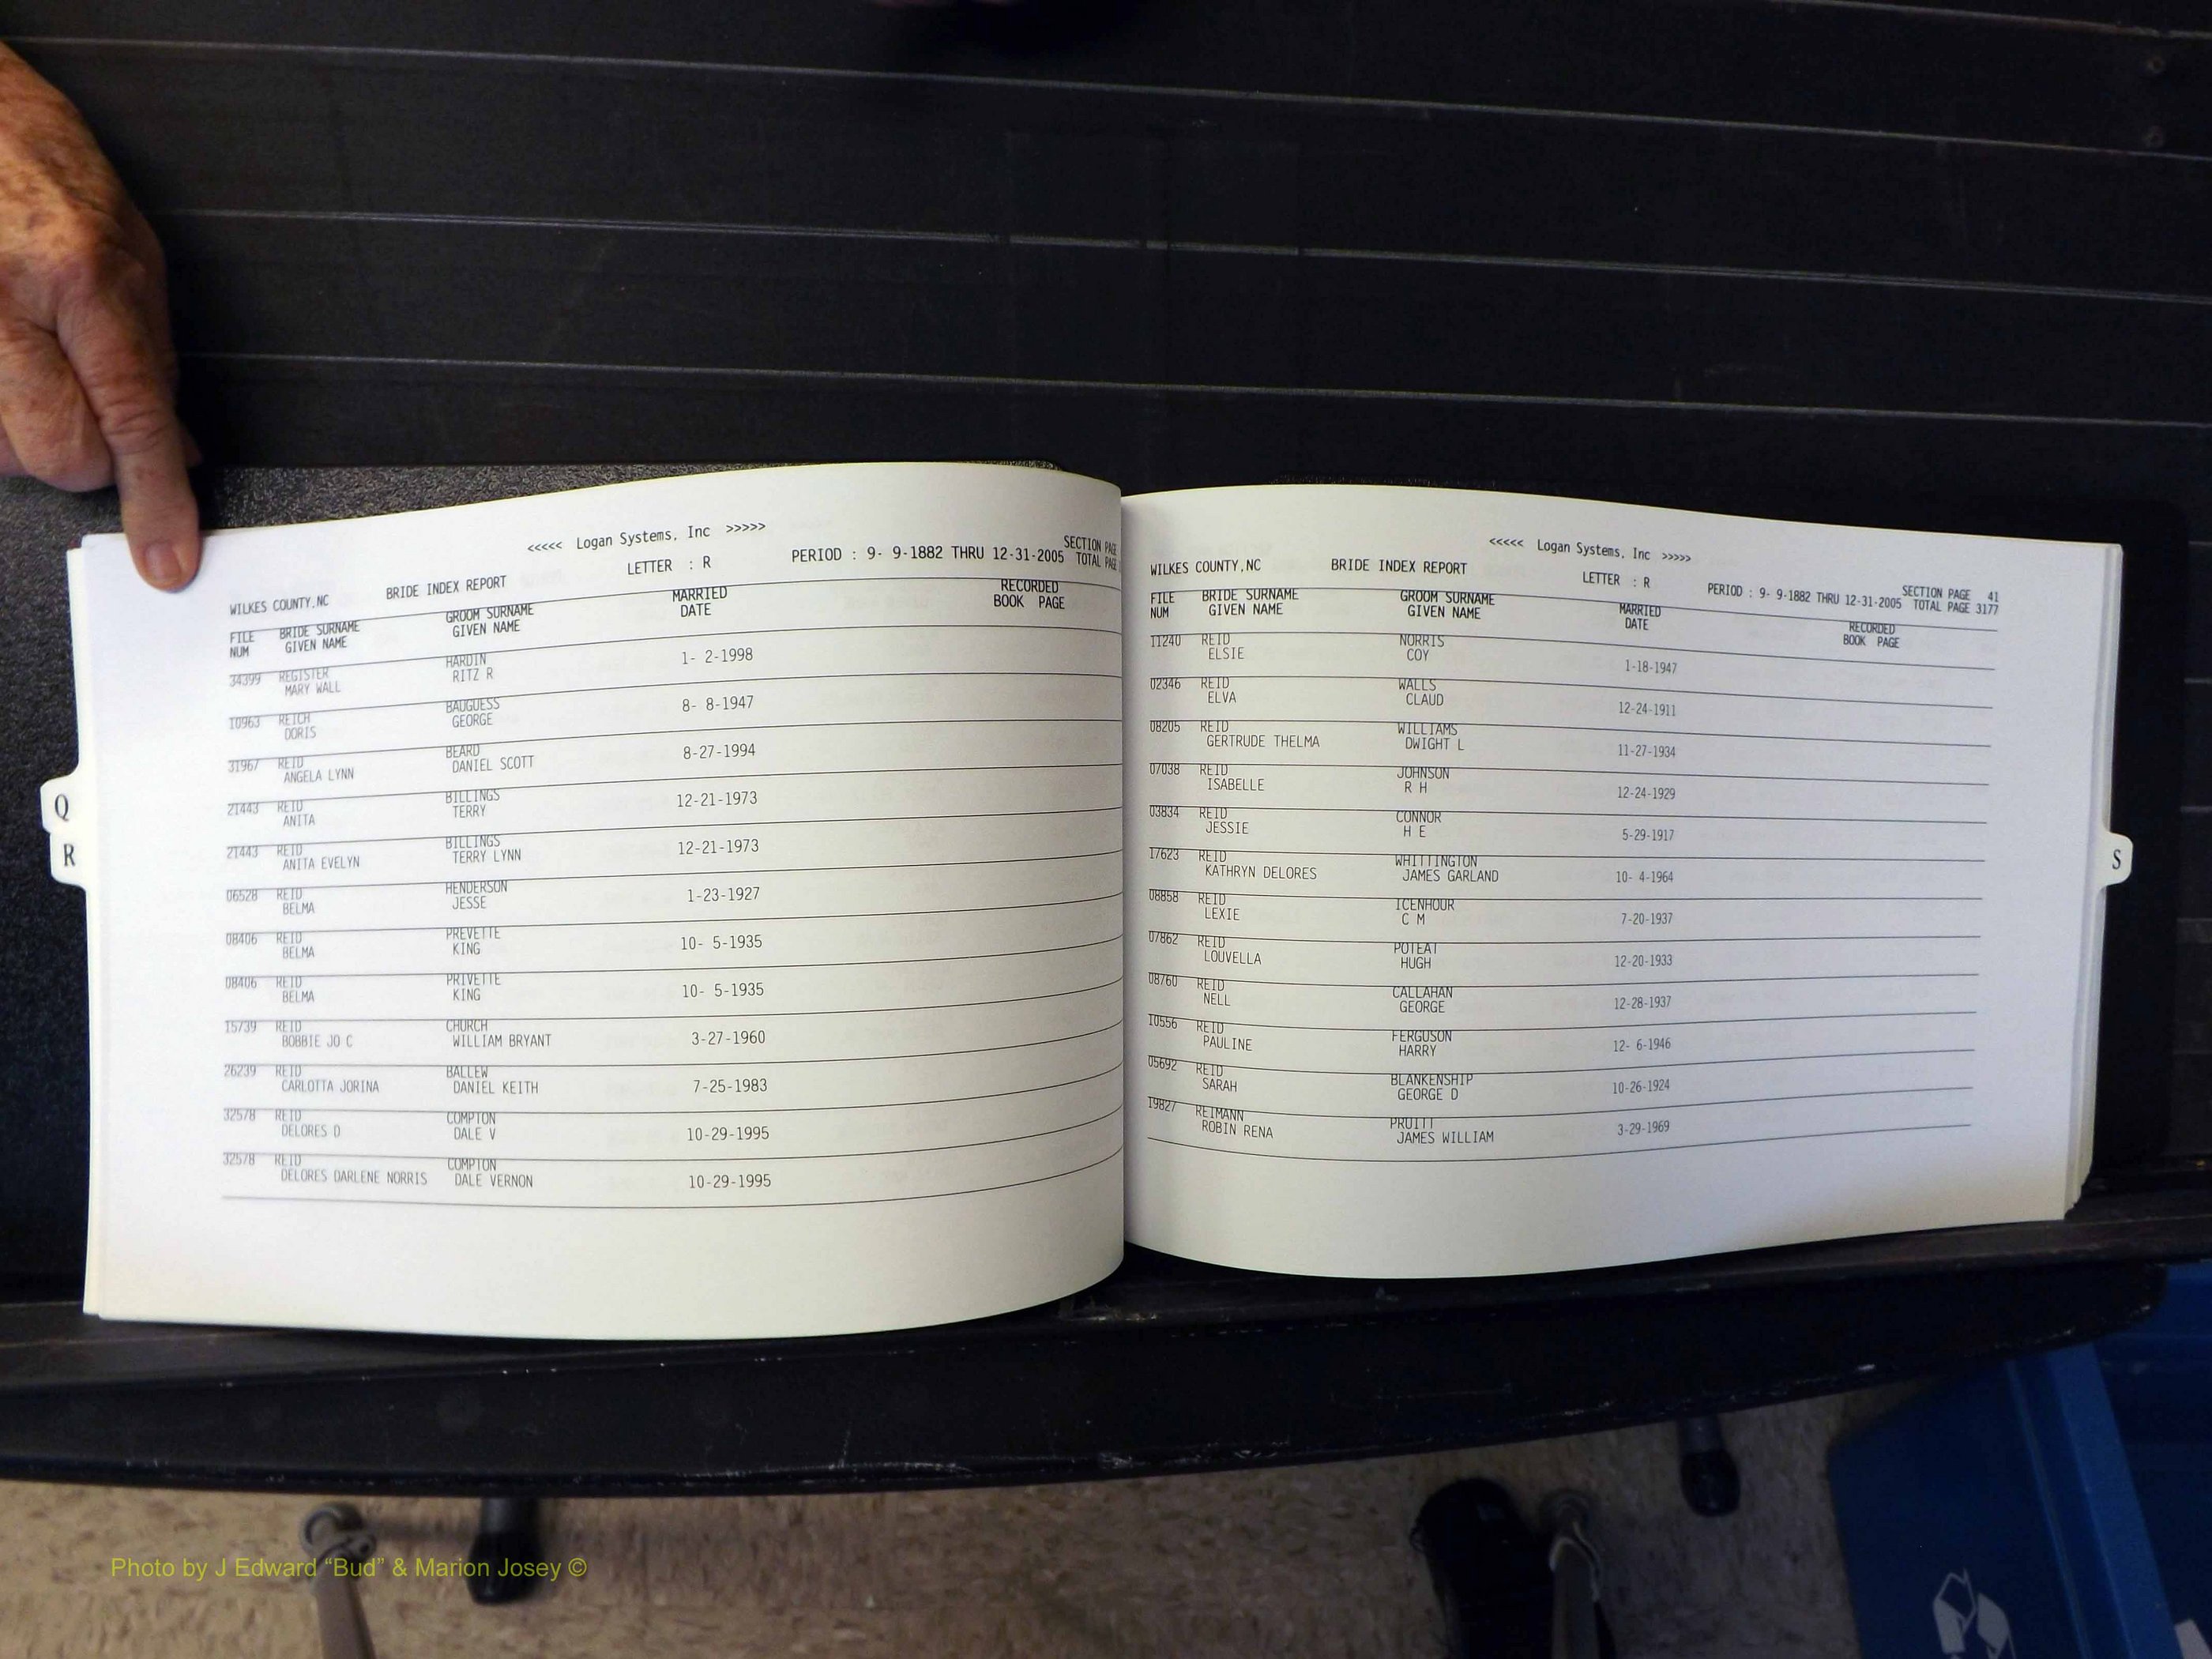 <<<<< Logan Systems, Inc >>>>>
WILKES COUNTY,NC BRIDE INDEX REPORT LETTER : R PERIOD : 9- 9-1882 THRU 12-31-2005 SECTION PAGE
TOTAL PAGE
FILE BRIDE SURNAME GROOM SURNAME MARRIED RECORDED
NUM GIVEN NAME GIVEN NAME DATE BOOK PAGE
34399 REGISTER HARDIN 1- 2-1998
MARY WALL RITZ R
10963 REICH BAUGUESS 8- 8-1947
DORIS GEORGE
31967 REID BEARD 8-27-1994
ANGELA LYNN DANIEL SCOTT
21443 REID BILLINGS 12-21-1973
ANITA TERRY
21443 REID BILLINGS 12-21-1973
ANITA EVELYN TERRY LYNN
06528 REID HENDERSON 1-23-1927
BELMA JESSE
08406 REID PREVETTE 10- 5-1935
BELMA KING
08406 REID PRIVETTE 10- 5-1935
BELMA KING
15739 REID CHURCH 3-27-1960
BOBBIE JO C WILLIAM BRYANT
26239 REID BALLEW 7-25-1983
CARLOTTA JORINA DANIEL KEITH
32578 REID COMPTON 10-29-1995
DELORES D DALE V
32578 REID COMPTON 10-29-1995
DELORES DARLENE NORRIS DALE VERNON
Q
R
<<<<< Logan Systems, Inc >>>>>
WILKES COUNTY,NC BRIDE INDEX REPORT LETTER : R PERIOD : 9- 9-1882 THRU 12-31-2005 SECTION PAGE 41
TOTAL PAGE 3177
FILE BRIDE SURNAME GROOM SURNAME MARRIED RECORDED
NUM GIVEN NAME GIVEN NAME DATE BOOK PAGE
11240 REID NORRIS 1-18-1947
ELSIE COY
02346 REID WALLS 12-24-1911
ELVA CLAUD
08205 REID WILLIAMS 11-27-1934
GERTRUDE THELMA DWIGHT L
07038 REID JOHNSON 12-24-1929
ISABELLE R H
03834 REID CONNOR 5-29-1917
JESSIE H E
17623 REID WHITTINGTON 10- 4-1964
KATHRYN DELORES JAMES GARLAND
08858 REID ICENHOUR 7-20-1937
LEXIE C M
07862 REID POTEAT 12-20-1933
LOUVELLA HUGH
08760 REID CALLAHAN 12-28-1937
NELL GEORGE
10556 REID FERGUSON 12- 6-1946
PAULINE HARRY
05692 REID BLANKENSHIP 10-26-1924
SARAH GEORGE D
19827 REIMANN PRUITT 3-29-1969
ROBIN RENA JAMES WILLIAM
S
Photo by J Edward “Bud” & Marion Josey ©